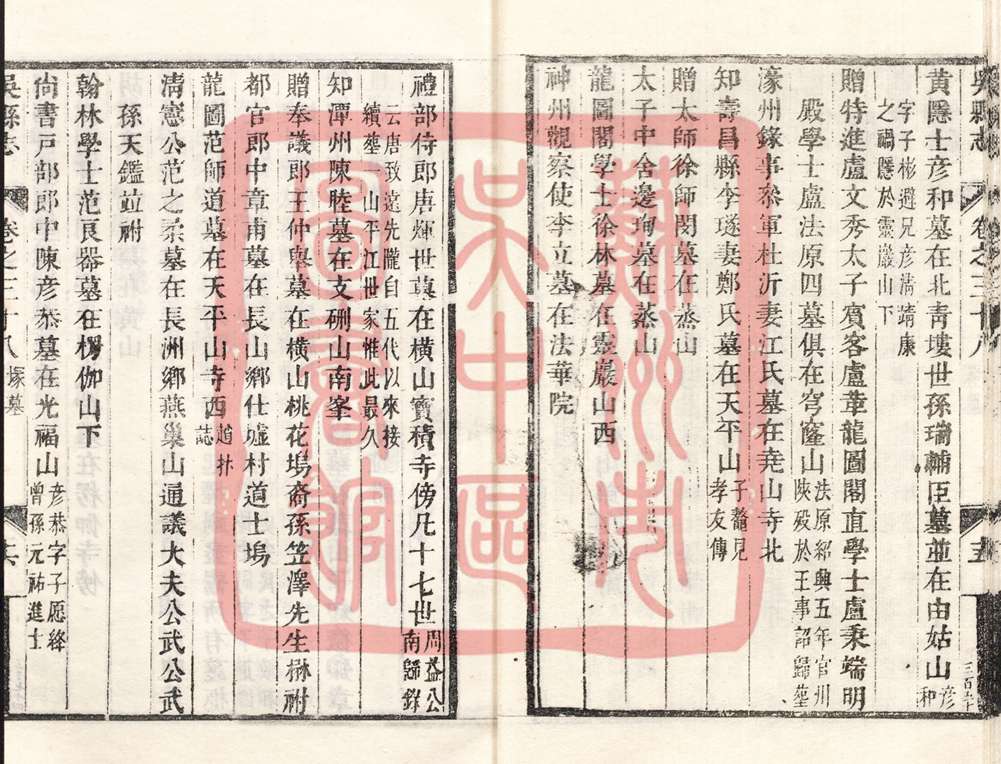 吳縣志 卷之三十八 五
黃隱士彥和墓在北青塿世孫瑞輔臣墓並在由姑山彥和
字子彬避兄彥淸靖康
之禍隱於靈巖山下
贈特進盧文秀太子賓客盧革龍圖閣直學士盧秉端明
殿學士盧法原四墓俱在穹窿山法原紹興五年官川
陝歿於王事詔歸塟
濠州錄事叅軍杜沂妻江氏墓在堯山寺北
知壽昌縣李璲妻鄭氏墓在天平山子鼇見
孝友傳
贈太師徐師閔墓在烝山
太子中舍邊珣墓在烝山
龍圖閣學士徐林墓在靈巖山西
神州觀察使李立墓在法華院
禮部侍郎唐煇世墓在橫山寶積寺傍凡十七世周益公
南歸錄
云唐致遠先隴自五代以來接
續塟一山平江世家惟此最久
知潭州陳睦墓在支硎山南峯
贈奉議郎王仲舉墓在橫山桃花塢裔孫笠澤先生楙祔
都官郎中章甫墓在長山鄉仕墟村道士塢
龍圖范師道墓在天平山寺西趙抃
誌
淸憲公范之柔墓在長洲鄉燕巢山通議大夫公武公武
孫天鑑竝祔
翰林學士范良器墓在楞伽山下
尙書戸部郎中陳彥恭墓在光福山彥恭字子愿絳
曾孫元祐進士
吳縣志 卷之三十八 塚墓 六
蘇州市
吳中區
圖書館